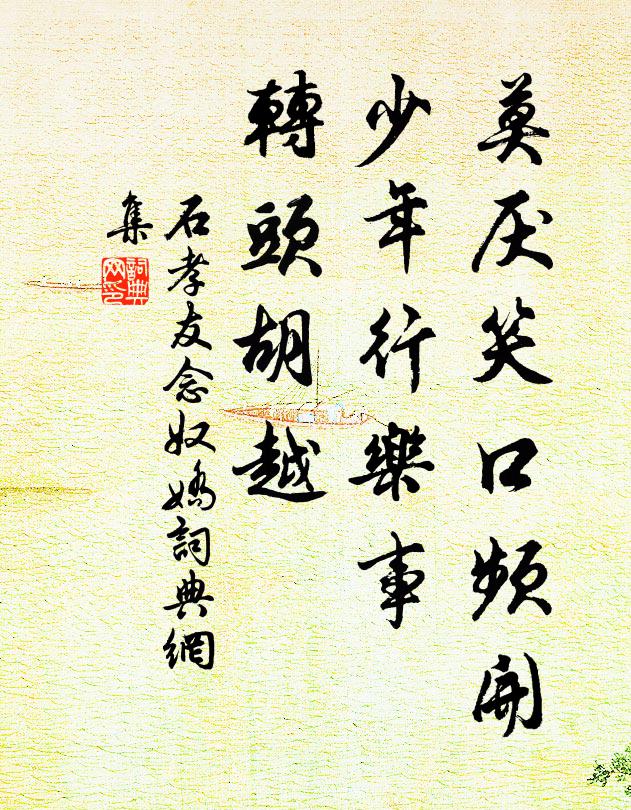 莫厌笑口頻開
少年行樂事
轉頭胡越
石孝友念奴嬌詞典網
集
詞典
网印